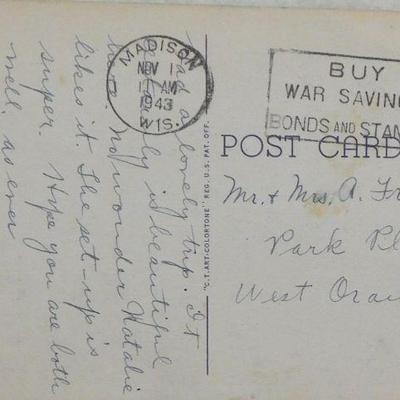 Had a lovely trip. It
certainly is beautiful
here. No wonder Natalie
likes it. The set-up is
super. Hope you are both
well. as ever
MADISON
NOV 1
AM
1943
WIS.
BUY
WAR SAVIN
BONDS AND STAM
POST CARD
"C.T. ART-COLORTONE" REG. U.S. PAT. OFF.
Mr. + Mrs. A. Fr
Park Pl
West Oran